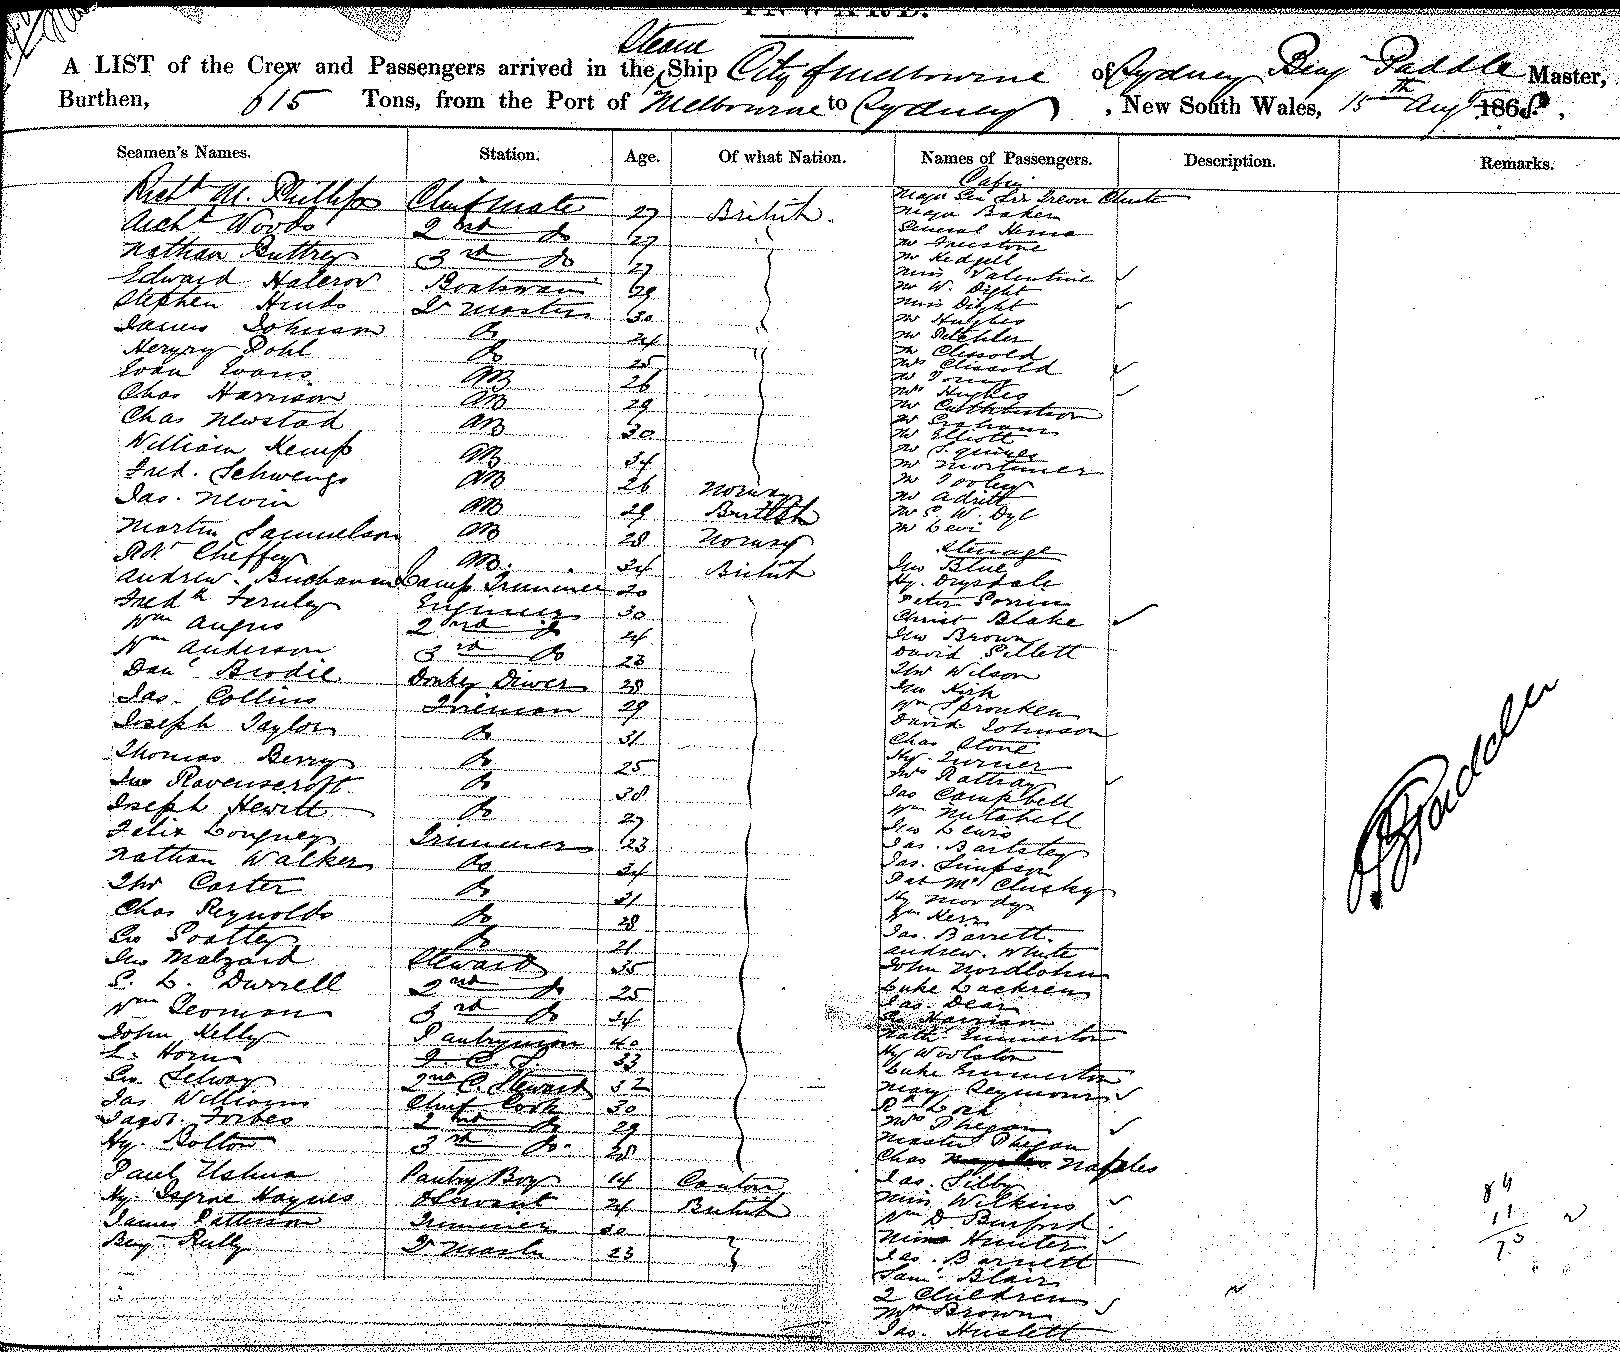 INWARD.
Steam
A LIST of the Crew and Passengers arrived in the Ship City of Melbourne of Sydney Benj Paddle Master,
Burthen, 615 Tons, from the Port of Melbourne to Sydney, New South Wales, 15th Aug 186
Seamen's Names. Station. Age. Of what Nation. Names of Passengers. Description. Remarks.
Cabin
Richd M. Phillips Chief Mate 27 British. Major Gen Sir Trevor Chute
Archd Woods 2nd Do 27 Major Baker
General
Nathan Buttrey 3rd Do 27 Mr
Mr Kedgell
Edward Halcrow Boatswain 29 Miss Valentine
Mr W. Dight
Stephen Hinds Qr Master 30 Miss Dight
Mr Hughes
James Johnson Do 24 Mr
Mr Clissold
Heryry Pohl Do 25 Mrs Clissold
Evan Evans AB 26 Mr
Mrs Hughes
Chas Harrison AB 29 Mr Cuthbertson
Mr Graham
Chas Newstad AB 30 Mr Elliott
Mr Squires
William Kemp AB 34 Mr Mortimer
Fred. Schwengs AB 26 Norway Mr Tooley
Mr
Jas. Nevin AB 29 British Mr
Mr Levi
Martin Samuelson AB 28 Norway Steerage
Robt Cheffey AB. 34 British Jno Blue
Andrew. Buchanan Lamp Trimmer 20 Hy. Drysdale
Peter
Fredk Fernley Engineer 30 Christ Blake
Wm Angus 2nd Do 24 Jno Brown
David Sillett
Wm Anderson 3rd Do 23 Thos Wilson
Danl Brodie Donkey Driver 28 Jno Kirk
Jas. Collins Fireman 29 Wm Spronken
David Johnson
Joseph Taylor Do 31 Chas Stone
Hy. Turner
Thomas Berry Do 25 Mrs Rattray
Jno Ravenscroft Do 38 Jas Campbell
Wm Mitchell
Joseph Hewitt Do 27 Jno Lewis
Felix Longney Trimmer 23 Jas. Bartley
Jas. Simpson
Nathan Walker Do 34 Pat McClusky
Thos Carter Do 21 Hy Moody
Wm Kerr
Chas Reynolds Do 28 Jas. Barrett.
Geo Do 21 Andrew. White
Jno Malzard Steward 35 John Nordlohn
S. L. Durrell 2nd Do 25 Luke
Jas. Dear
Wm Yeoman 3rd Do 34 Geo Harrison
John Kelly Pantryman 40 Emmerton
L. Horn F. C. S. 33 Hy Woolaton
Geo. Selway 2nd C. Steward 32 Luke Emmerton
Mary Seymour
Jas Williams Chief Cook 30 Rd Lock
Jacob. Forbes 2nd Do 29 Mrs Phegan
Hy. Bolton 3rd Do. 28 Master Phegan
Chas Naples
Paul Ushua Pantry Boy 14 Canton Jas. Silby
Hy. Haynes Servant 24 British Miss Wilkins
Wm D Burford
James Patterson Trimmer 30 Hunter
Benj Rully Qr Master 23 Jas. Barnett
Saml. Blair
2 Children
Mrs Brown
Jas. Huslett
B Paddle
84
11
73